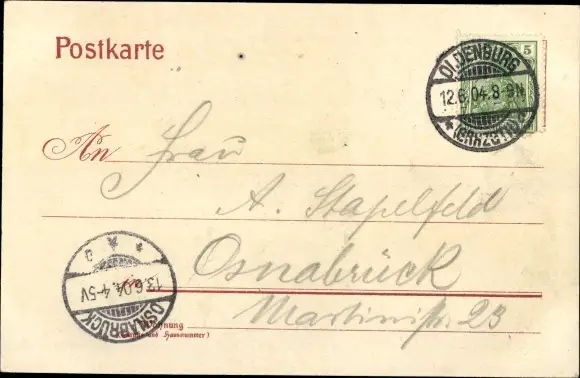 Postkarte
5
OLDENBURG
12.6.04.8-9N
*(GRHZGTH)*
An Frau
A. Stapelfeld
Osnabrück
OSNABRÜCK
13.6.04.4-5V
Martinistr. 23
(Straße und Hausnummer)